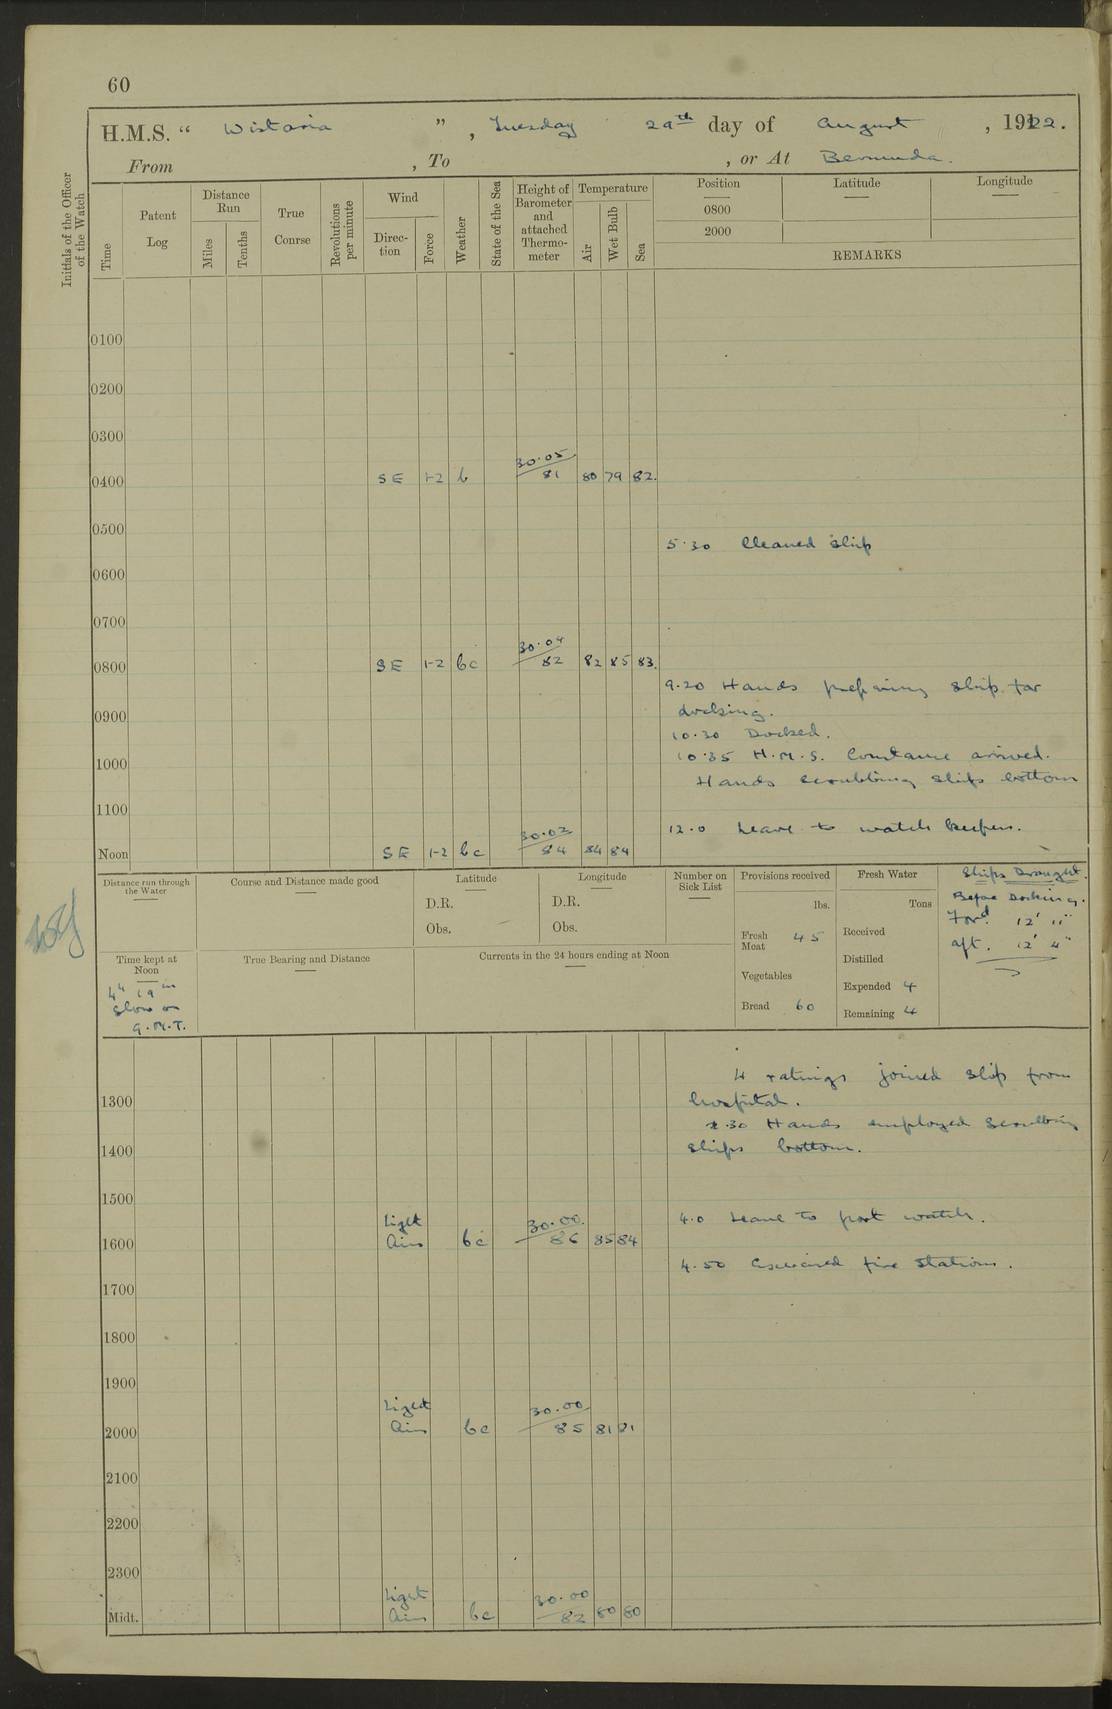 60
H.M.S. “ Wistaria ” , Tuesday 29th day of August , 1922.
From , To , or At Bermuda.
Initials of the Officer of the Watch
Time
Patent Log
Distance Run
Miles
Tenths
True Course
Revolutions per minute
Wind
Direction
Force
Weather
State of the Sea
Height of Barometer and attached Thermometer
Temperature
Air
Wet Bulb
Sea
Position Latitude Longitude
0800
2000
REMARKS
0100
0200
0300
0400 SE 1-2 b 30.05 81 80 79 82.
0500
5.30 Cleaned ship
0600
0700
0800 SE 1-2 bc 30.04 82 82 85 83.
9.20 Hands preparing ship for
docking.
0900
10.30 Docked.
10.35 H.M.S. Constance arrived.
1000
Hands scrubbing ships bottom
1100
12.0 Leave to watch keepers.
Noon SE 1-2 bc 30.03 84 84 84
Distance run through the Water
Course and Distance made good
Latitude
D.R.
Obs.
Longitude
D.R.
Obs.
Number on Sick List
Provisions received
lbs.
Fresh Meat 45
Vegetables
Bread 60
Fresh Water
Tons
Received
Distilled
Expended 4
Remaining 4
Ships Draught.
Before Docking.
Ford. 12' 11"
aft. 12' 4"
Time kept at Noon
4h 19m
slow on
G.M.T.
True Bearing and Distance
Currents in the 24 hours ending at Noon
4 ratings joined ship from
hospital.
1300
.30 Hands employed scrubbing
ships bottom.
1400
1500
4.0 Leave to port watch.
1600 Light Airs bc 30.00. 86 85 84
4.50 Exercised fire stations.
1700
1800
1900
2000 Light Airs bc 30.00 85 81 81
2100
2200
2300
Midt. Light Airs bc 30.00 82 80 80